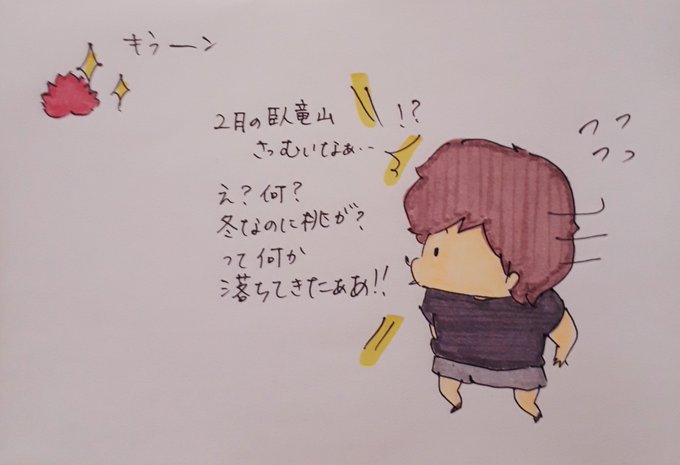 キラーン
2月の臥竜山
さっむいなぁ・・
!?
え?何?
冬なのに桃が?
って何か
落ちてきたぁあ!!